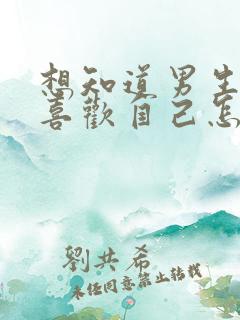 想知道男生
喜歡自己怎
劉共希
未经同意禁止转载